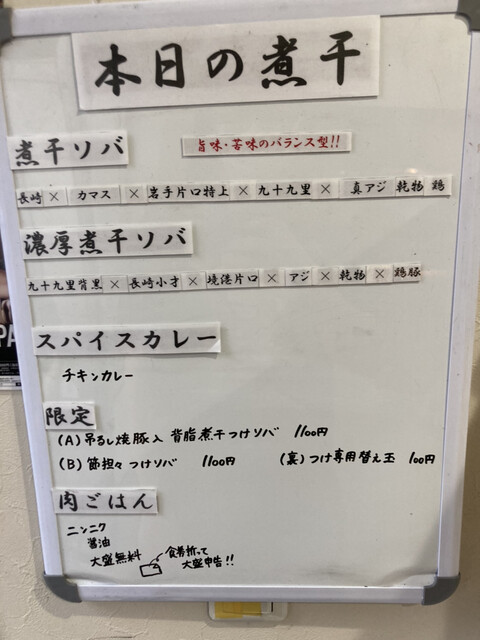 本日の煮干
煮干ソバ
旨味・苦味のバランス型!!
長崎 × カマス × 岩手片口特上 × 九十九里 × 真アジ 乾物 鶏
濃厚煮干ソバ
九十九里背黒 × 長崎小才 × 境港片口 × アジ × 乾物 × 鶏豚
スパイスカレー
チキンカレー
限定
(A) 吊るし焼豚入 背脂煮干つけソバ 1100円
(B) 節担々つけソバ 1100円 (裏)つけ専用替え玉 100円
肉ごはん
ニンニク
醤油
大盛無料 食券折って
大盛申告!!